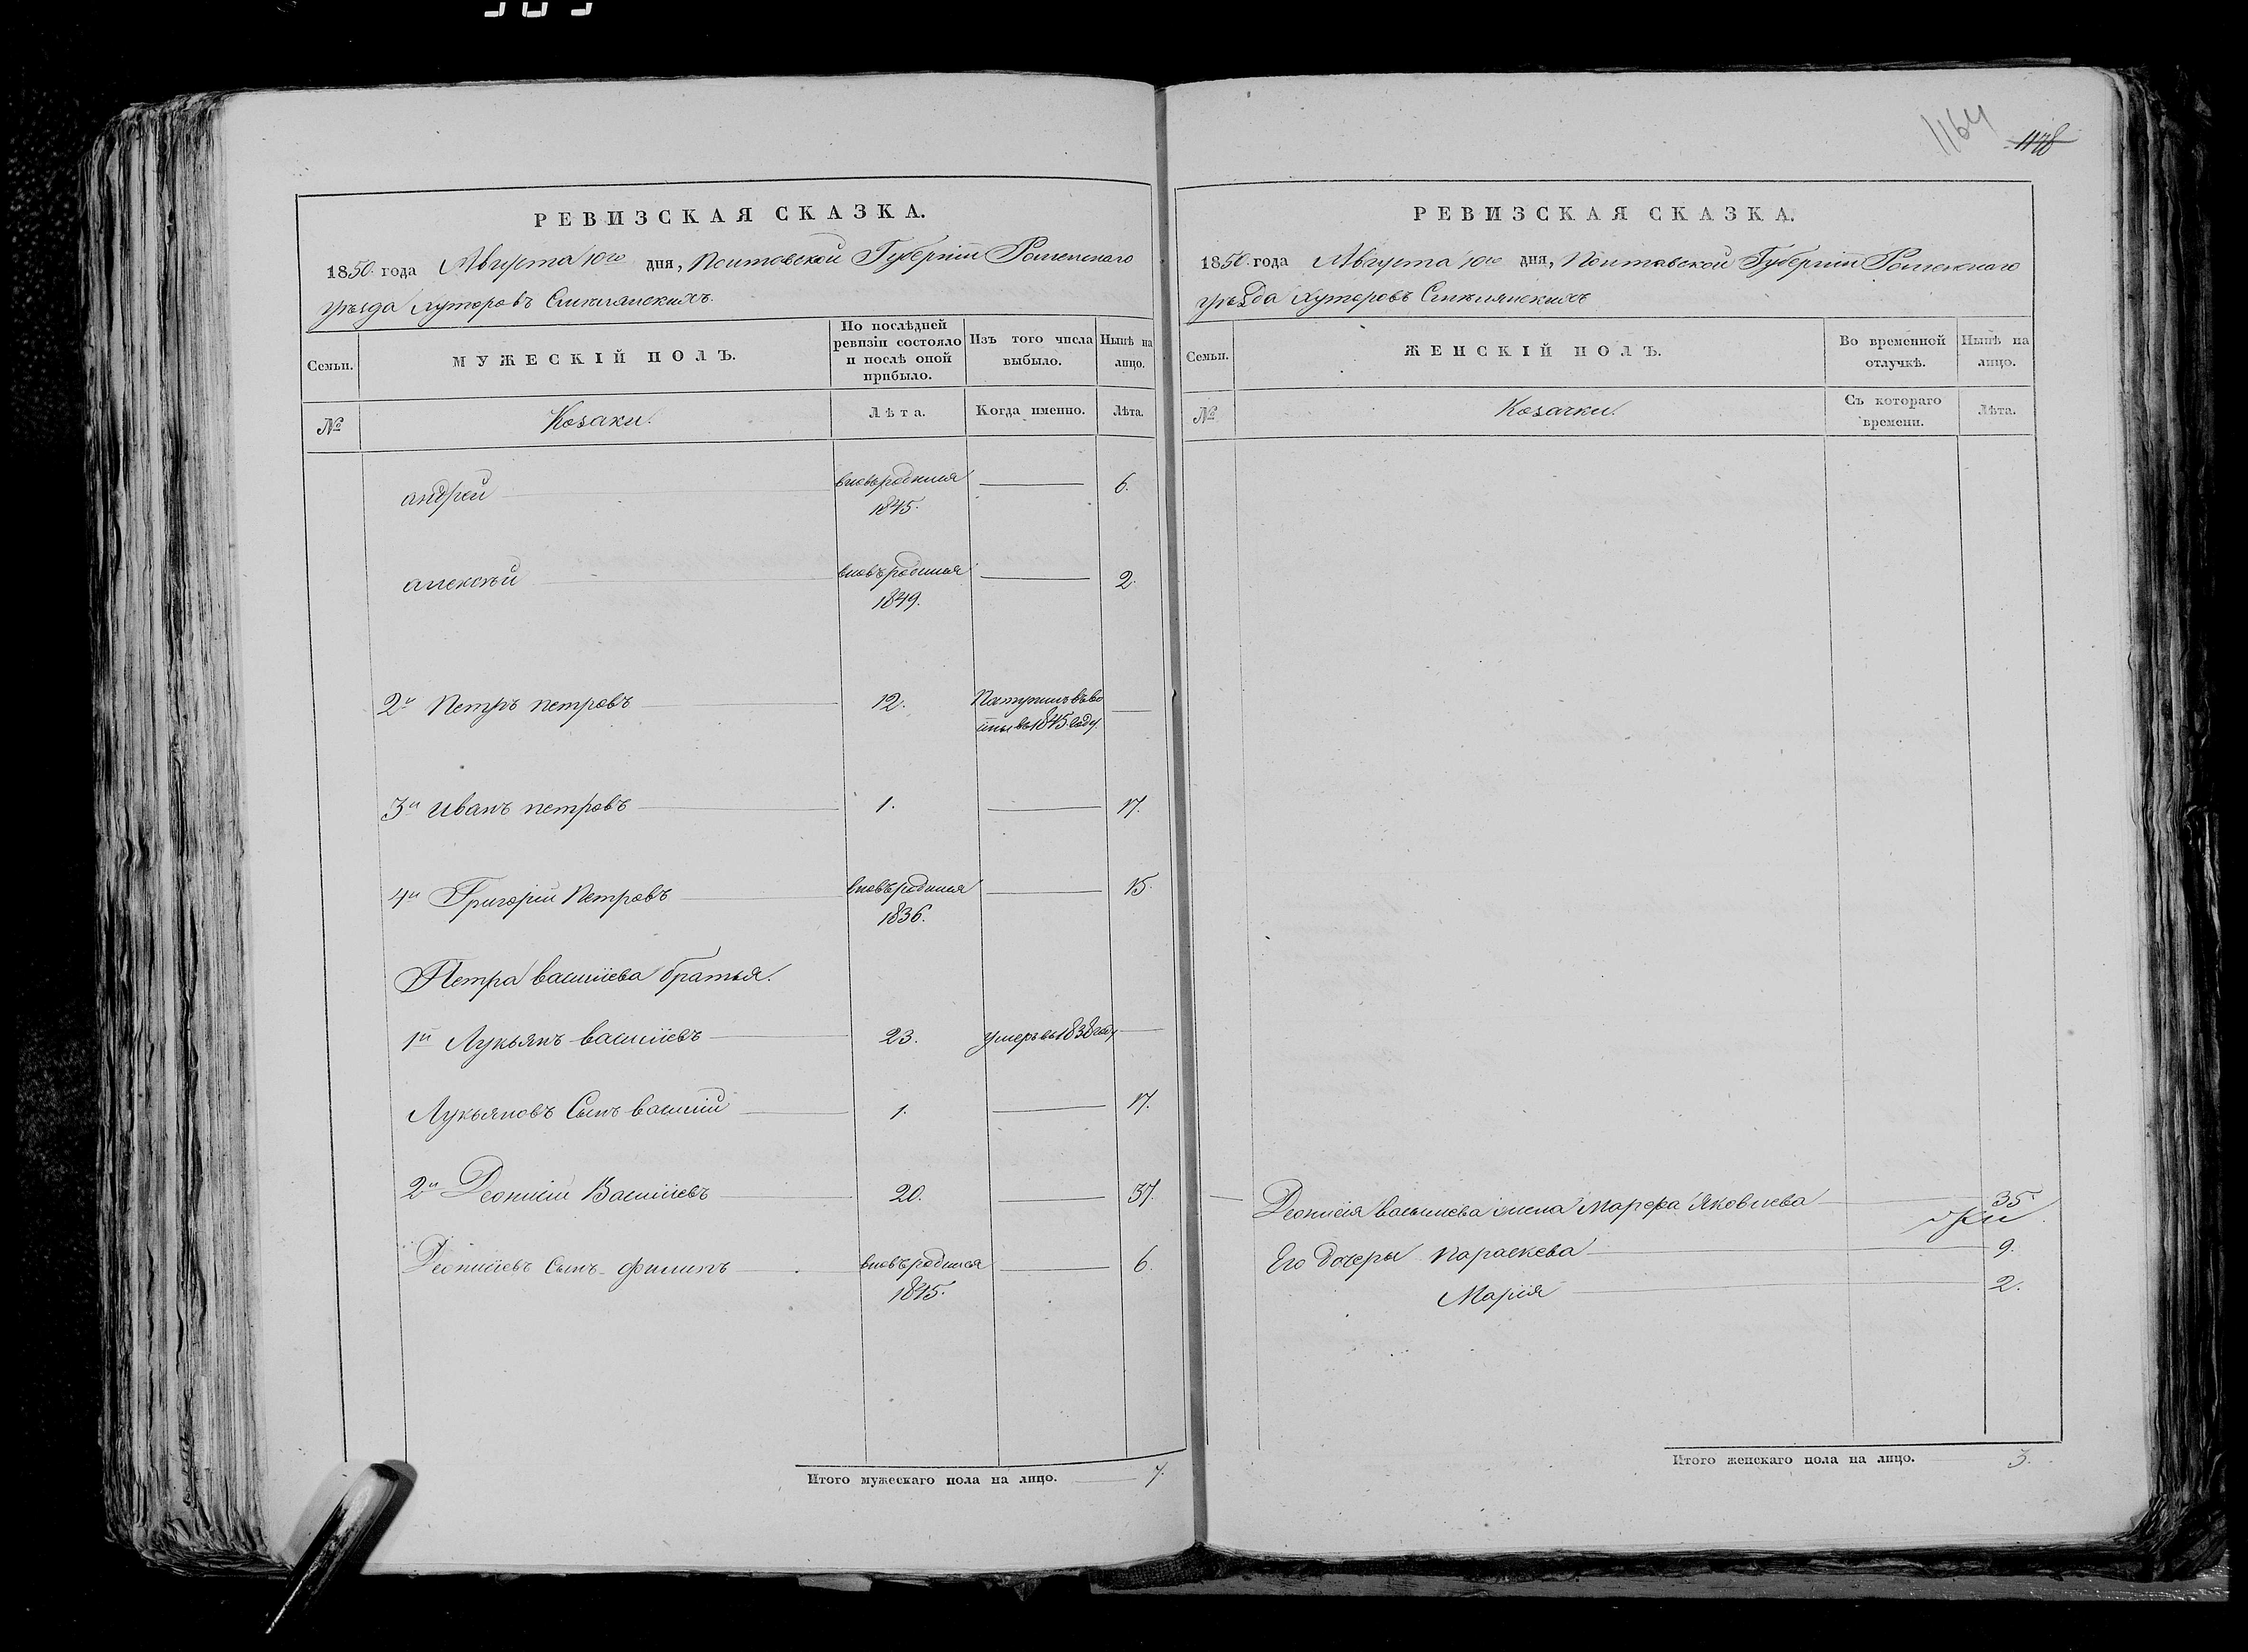 1164
1178
РЕВИЗСКАЯ СКАЗКА.
1850. года Августа 10го дня, Полтавской Губерніи Роменскаго
уѣзда хуторовъ
Семьи.
МУЖЕСКІЙ ПОЛЪ.
По послѣдней ревизіи состояло и послѣ оной прибыло.
Изъ того числа выбыло.
Нынѣ на лицо.
№
Козаки.
Лѣта.
Когда именно.
Лѣта.
андрей вновьродился 1845. 6.
алексѣй вновьродился 1849. 2.
2й Петръ петровъ 12. Поступилъ въ 1845 году
3й Иванъ петровъ 1. 17.
4й Григорій Петровъ вновьродился 1836. 15.
Петра василіева братья.
1й Лукьянъ василіевъ 23. умеръ въ 1838 году
Лукьяновъ Сынъ василій 1. 17.
2й Деонисій Василіевъ 20. 37.
Деонисіевъ сынъ филипъ вновьродился 1845. 6.
Итого мужескаго пола на лицо. 7.
РЕВИЗСКАЯ СКАЗКА.
1850. года Августа 10го дня, Полтавской Губерніи Роменскаго
уѣзда хуторовъ
Семьи.
ЖЕНСКІЙ ПОЛЪ.
Во временной отлучкѣ.
Нынѣ на лицо.
№
Козачки.
Съ котораго времени.
Лѣта.
Деонисія василіева жена Марфа Яковлева 35.
Его дочеры параскева 9.
Марія 2.
Итого женскаго пола на лицо. 3.